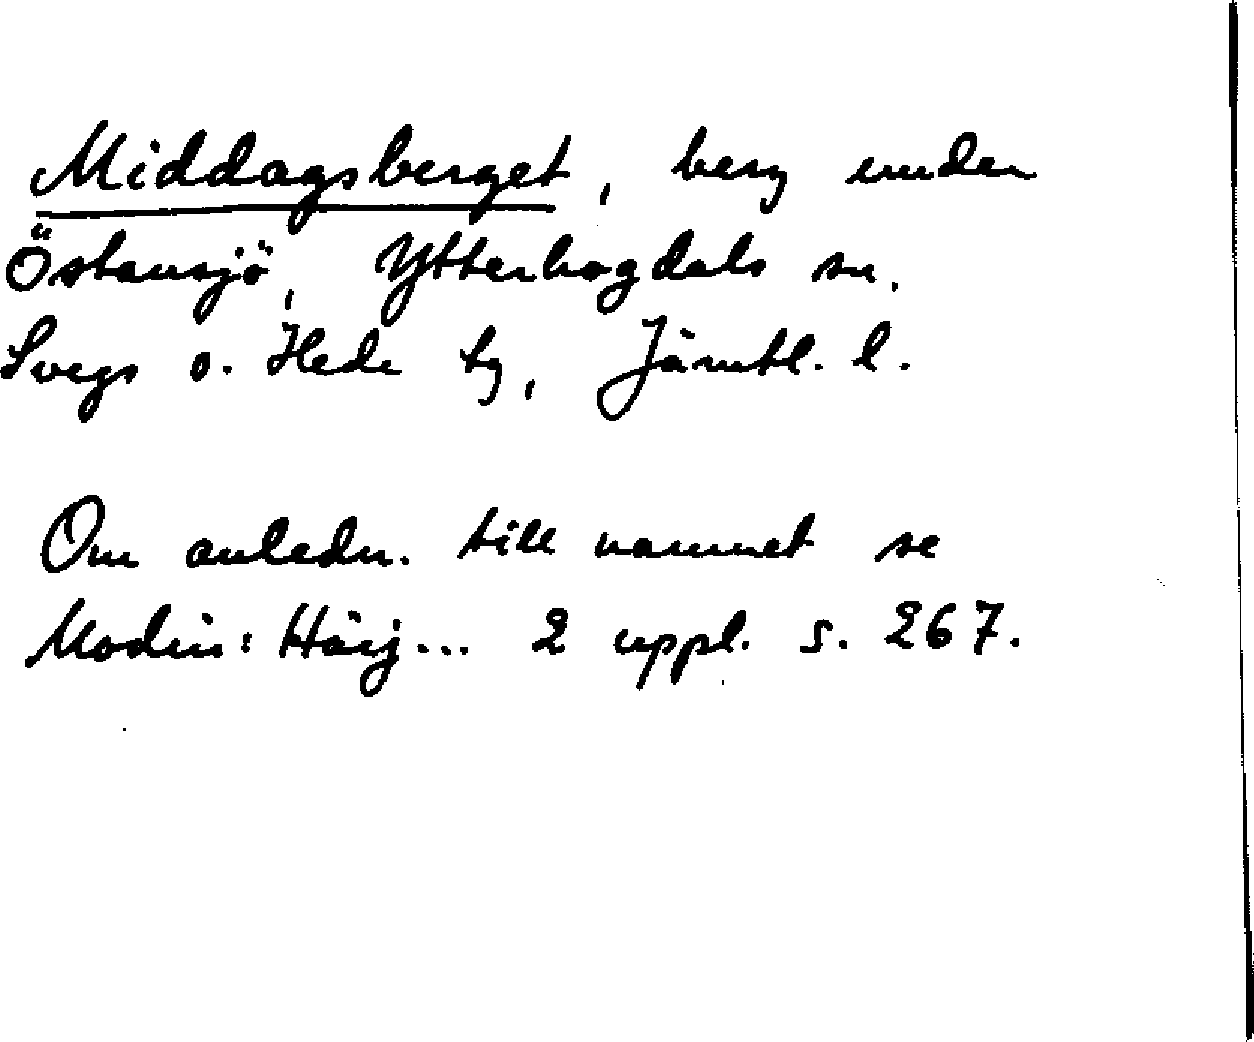 Middagsberget, berg under
Östansjö, Ytterhogdals sn.
Svegs o. Hede tg, Jämtl. l.
Om anledn. till namnet se
Modin: Härj... 2 uppl. s. 267.